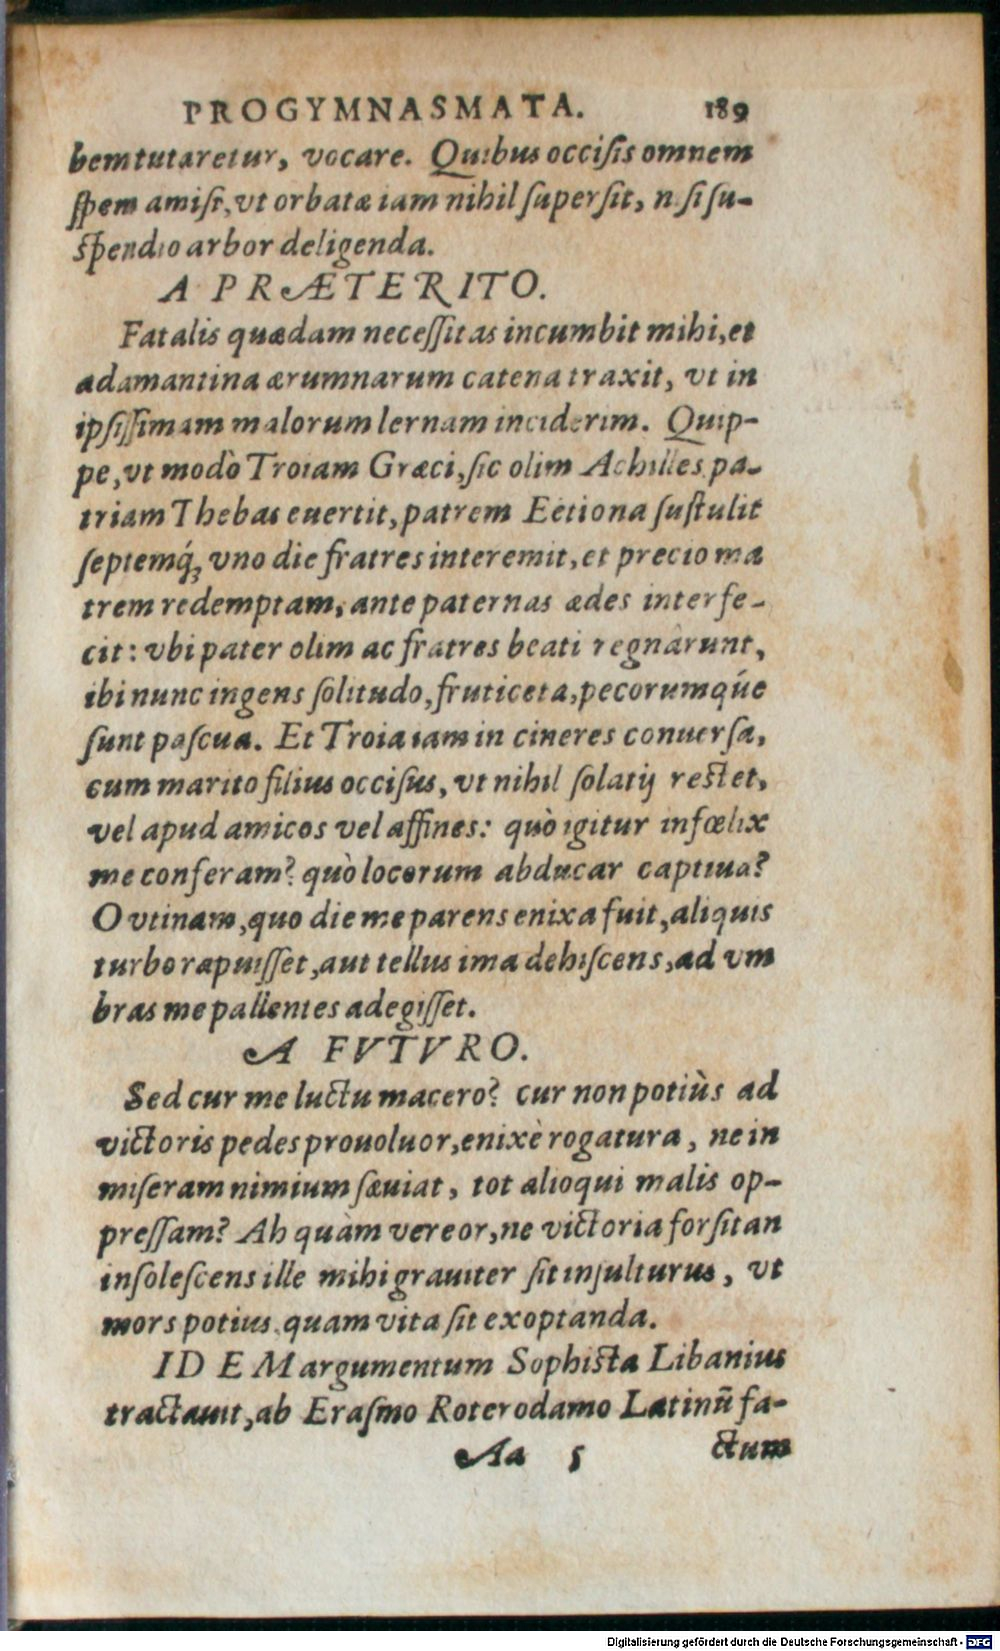 PROGYMNASMATA. 189
bem tutaretur, vocare. Quibus occisis omnem
spem amisi, vt orbatæ iam nihil supersit, nisi su-
spendio arbor deligenda.
A PRÆTERITO.
Fatalis quædam necessitas incumbit mihi, et
adamantina ærumnarum catena traxit, vt in
ipsissimam malorum lernam inciderim. Quip-
pe, vt modò Troiam Græci, sic olim Achilles pa-
triam Thebas euertit, patrem Eetiona sustulit
septemq́; vno die fratres interemit, et precio ma
trem redemptam, ante paternas ædes interfe-
cit: vbi pater olim ac fratres beati regnârunt,
ibi nunc ingens solitudo, fruticeta, pecorumq́ue
sunt pascua. Et Troia iam in cineres conuersa,
cum marito filius occisus, vt nihil solatij restet,
vel apud amicos vel affines: quò igitur infœlix
me conferam? quò locorum abducar captiua?
O vtinam, quo die me parens enixa fuit, aliquis
turbo rapuisset, aut tellus ima dehiscens, ad vm
bras me pallentes adegisset.
A FVTVRO.
Sed cur me luctu macero? cur non potiùs ad
victoris pedes prouoluor, enixè rogatura, ne in
miseram nimium sæuiat, tot alioqui malis op-
pressam? Ah quàm vereor, ne victoria forsitan
insolescens ille mihi grauiter sit insulturus, vt
mors potius quam vita sit exoptanda.
IDEM argumentum Sophista Libanius
tractauit, ab Erasmo Roterodamo Latinū fa-
Aa 5 ctum
Digitalisierung gefördert durch die Deutsche Forschungsgemeinschaft - DFG